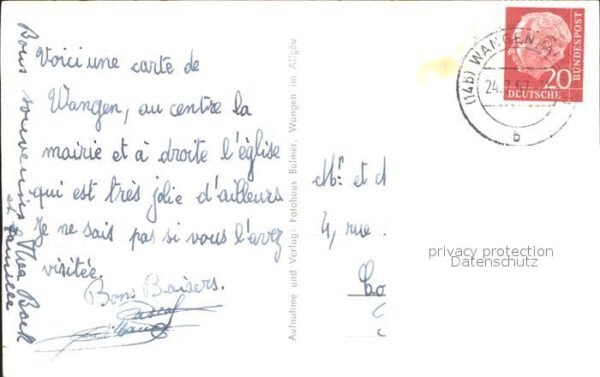 Voici une carte de
Wangen, au centre la
mairie et à droite l'église
qui est très jolie d'ailleurs
Je ne sais pas si vous l'avez
visitée.
Bons Baisers.
Bons souvenirs
et famille
Aufnahme und Verlag: Fotohaus Bulmer, Wangen im Allgäu
(14b) WANGEN
24.7.57
b
20
DEUTSCHE
BUNDESPOST
Mr et
4, rue
privacy protection
Datenschutz